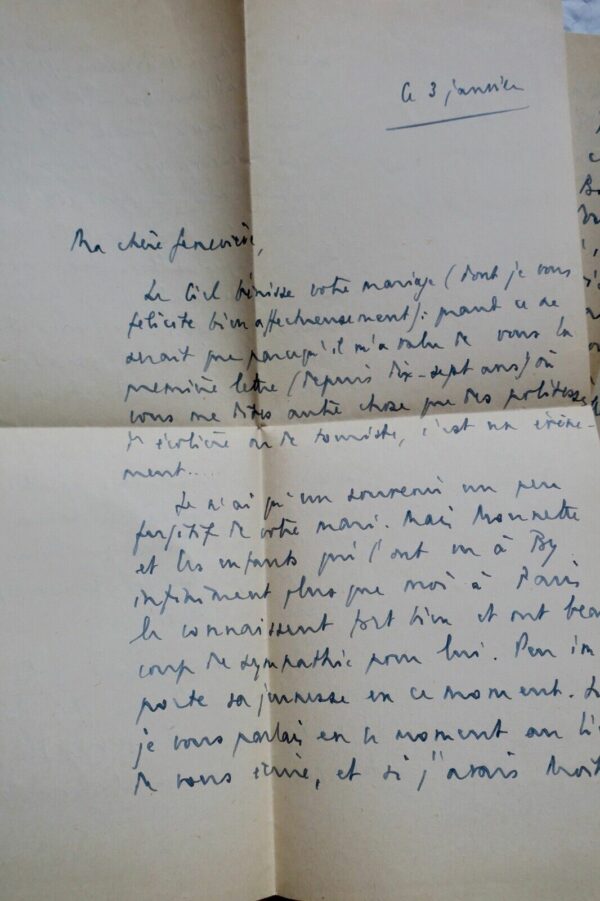 Ce 3 janvier
Ma chère Geneviève,
Le Ciel bénisse votre mariage (dont je vous
félicite bien affectueusement) : quand ce ne
serait que parce qu'il m'a valu de vous la
première lettre (depuis dix-sept ans) où
vous me dites autre chose que des politesses
d'écolière ou de touriste, c'est un événe-
ment.....
Je n'ai qu'un souvenir un peu
fugitif de votre mari. Mais Nounette
et les enfants qui l'ont vu à By
infiniment plus que moi à Paris
le connaissent fort bien et ont beau
coup de sympathie pour lui. Peu im
porte sa jeunesse en ce moment. Si
je vous parlais en ce moment au li
de vous écrire, et si j'avais droit